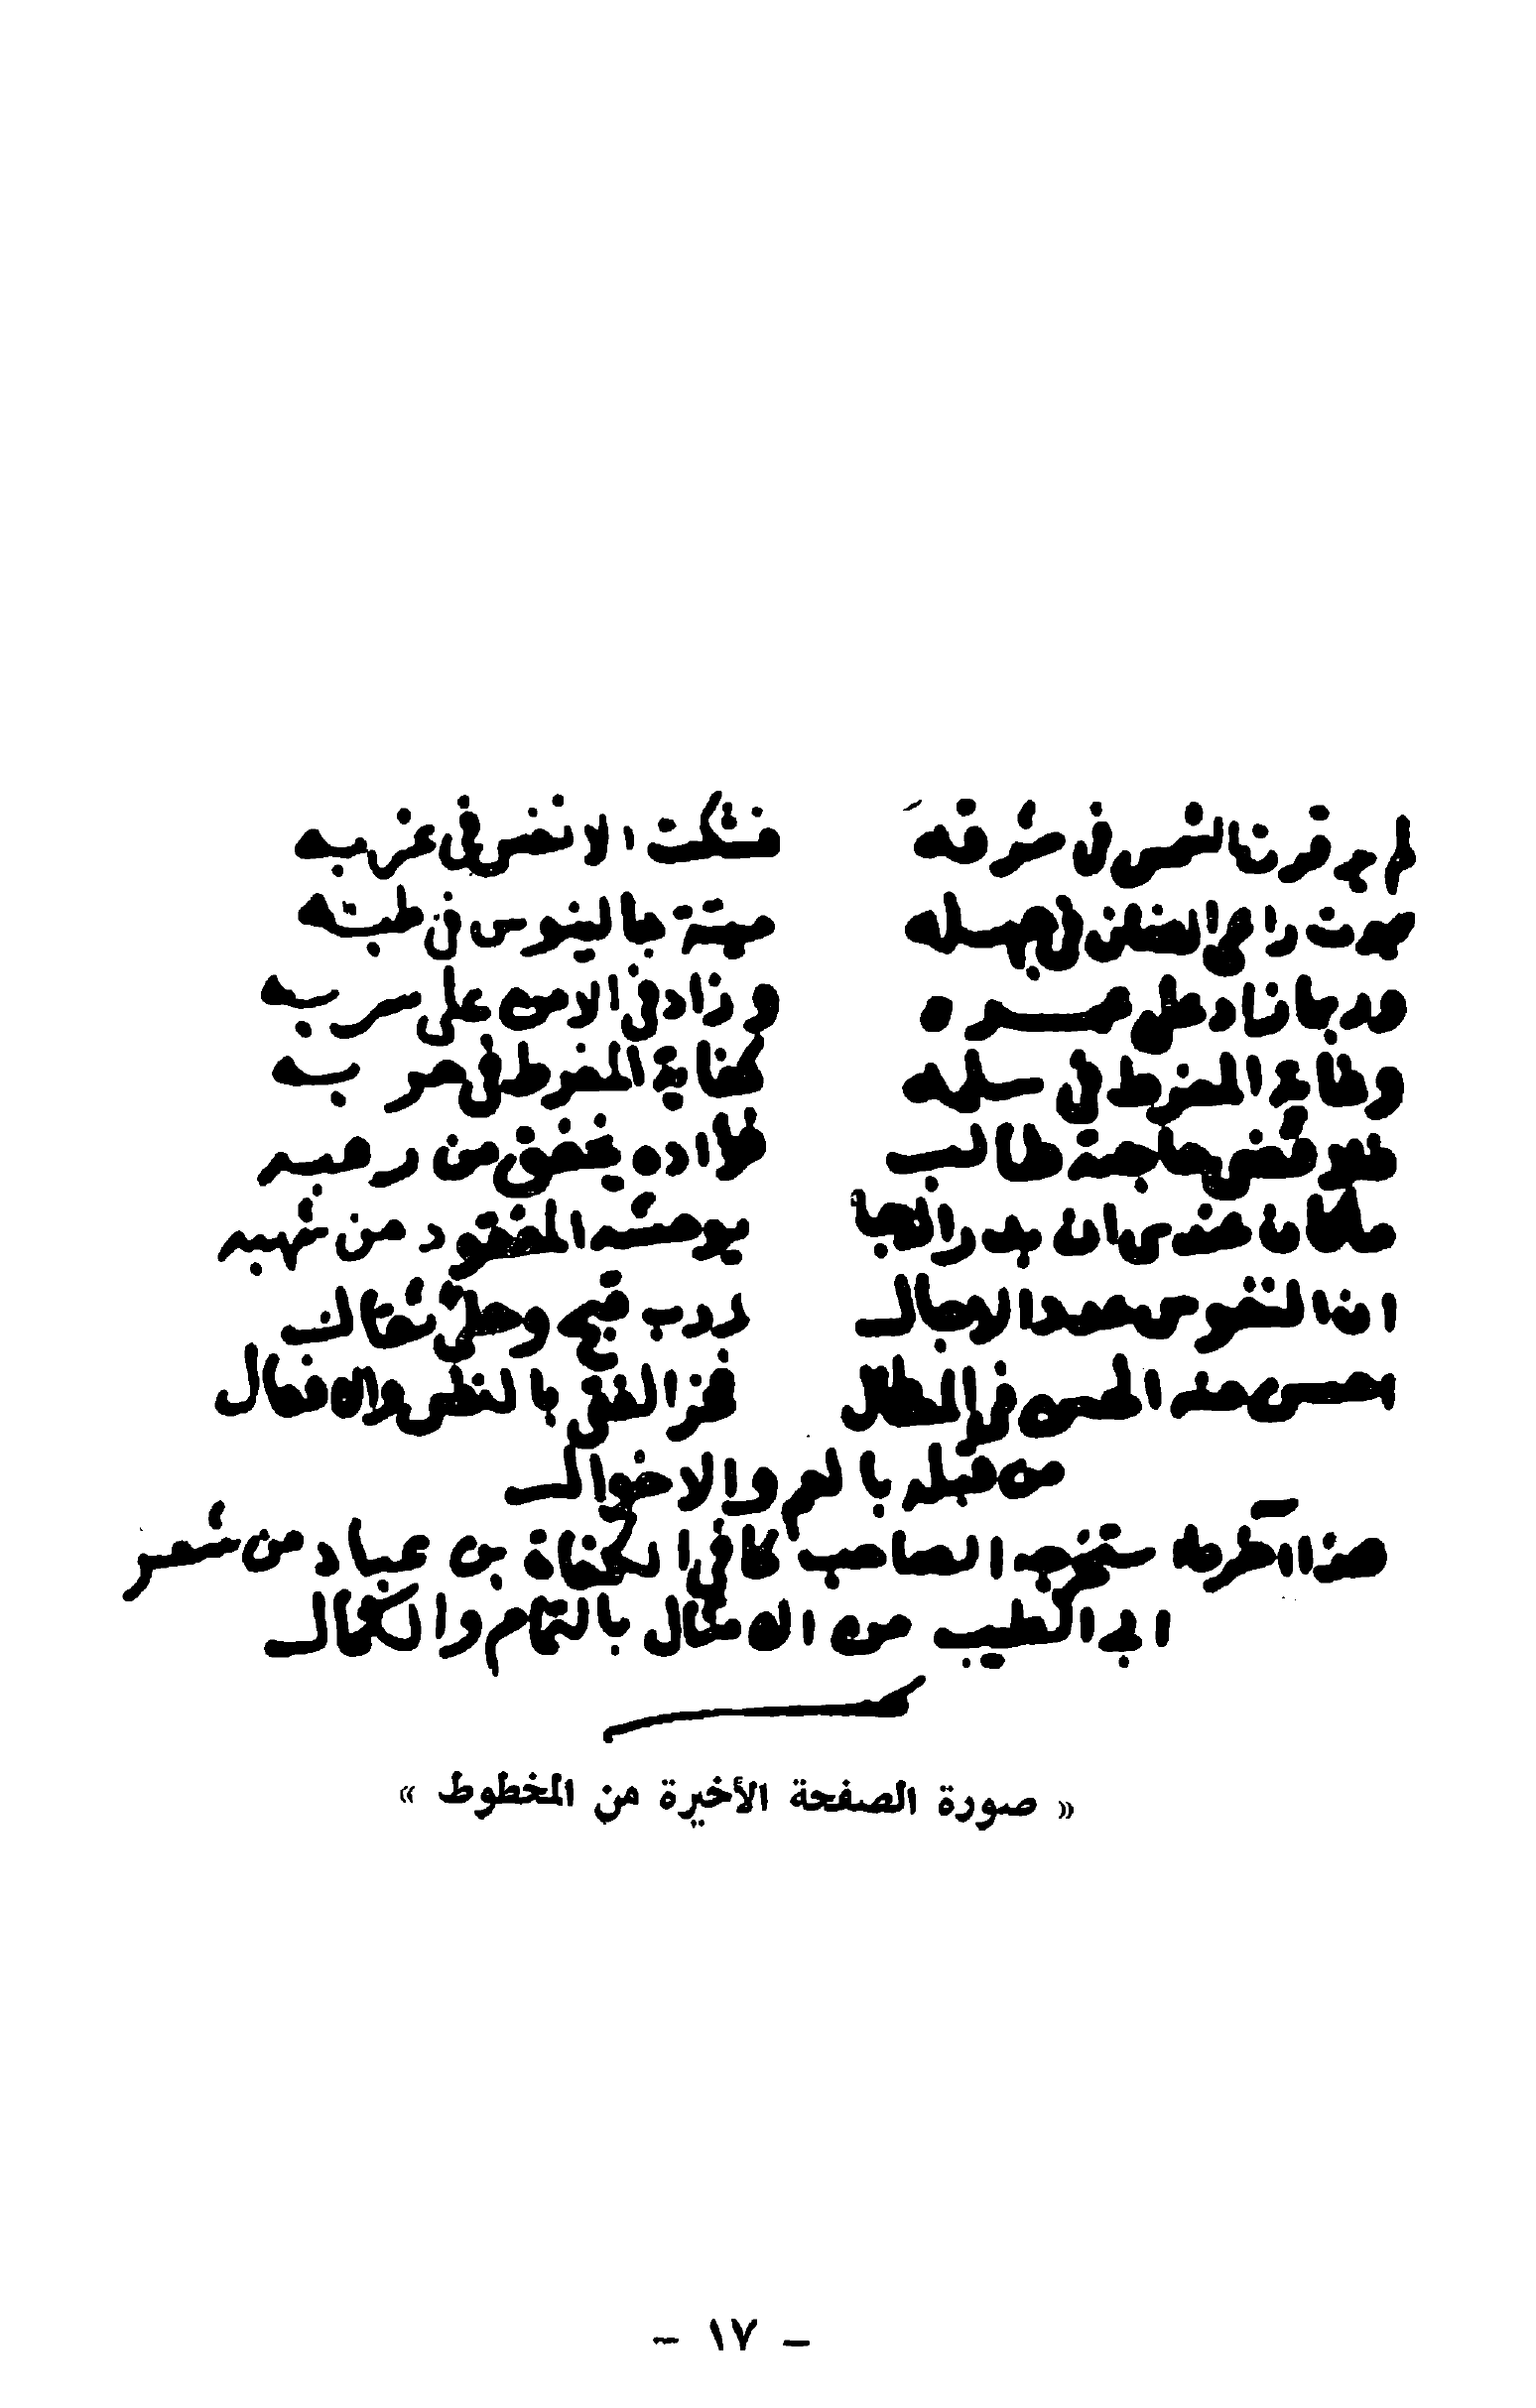 لم ير قرن الشمس فى شرقه فشكت الانفس فى غربه
يموت راعى الضان فى جهله ميتة جالينوس فى طبه
وربما زاد على عمره وزاد فى الامن على سربه
وغاية المفرط فى سلمه كغاية المفرط فى حربه
فلا قضى حاجته طالب فؤاده يخفق من رعبه
ما كان عندى ان بدر الدجا يوحشه المفقود من شهبه
ان النفوس عدد الاجال رب قبح وحلى ثقال
احسن منها الحسن فى المعطال فخر الفتى بالنفس والافعال
من قبله بالعم والاخوال
هذا آخر ما استخرجه الصاحب كافى الكفاة بن عباد من شعر
ابى الطيب من الامثال بالتمام والكمال
« صورة الصفحة الأخيرة من المخطوط »
– ١٧ –